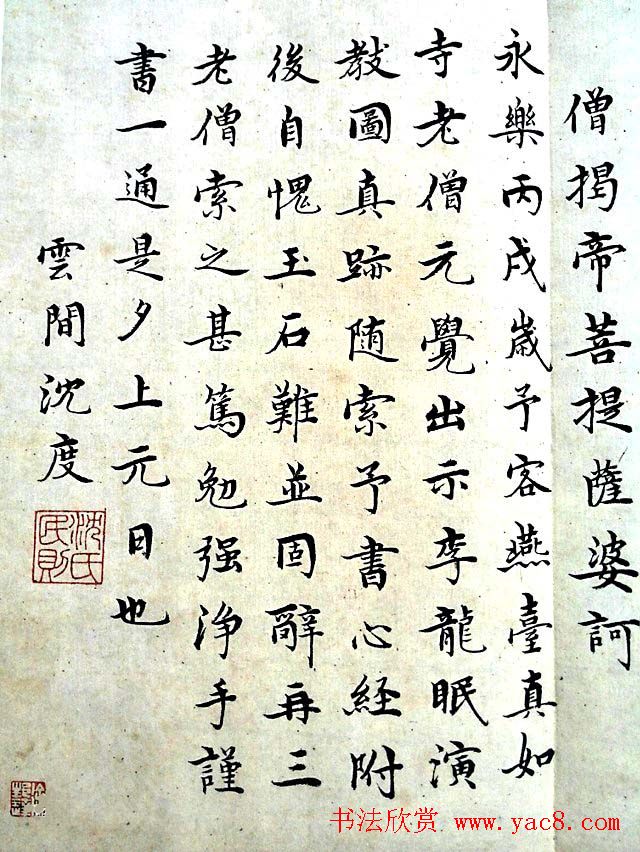 僧揭帝菩提薩婆訶
永樂丙戌歲予客燕臺真如
寺老僧元覺出示李龍眠演
教圖真跡随索予書心経附
後自愧玉石難並固辭再三
老僧索之甚篤勉强浄手謹
書一通是夕上元日也
雲間沈度
沈氏民則
书法欣赏 www.yac8.com